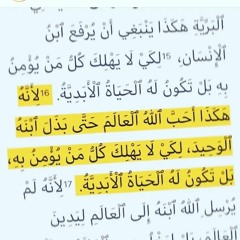 ٱلْبَرِّيَّةِ هَكَذَا يَنْبَغِي أَنْ يُرْفَعَ ٱبْنُ
ٱلْإِنْسَانِ، ١٥لِكَيْ لَا يَهْلِكَ كُلُّ مَنْ يُؤْمِنُ
بِهِ بَلْ تَكُونُ لَهُ ٱلْحَيَاةُ ٱلْأَبَدِيَّةُ. ١٦لِأَنَّهُ
هَكَذَا أَحَبَّ ٱللهُ ٱلْعَالَمَ حَتَّى بَذَلَ ٱبْنَهُ
ٱلْوَحِيدَ، لِكَيْ لَا يَهْلِكَ كُلُّ مَنْ يُؤْمِنُ بِهِ،
بَلْ تَكُونُ لَهُ ٱلْحَيَاةُ ٱلْأَبَدِيَّةُ. ١٧لِأَنَّهُ لَمْ
يُرْسِلِ ٱللهُ ٱبْنَهُ إِلَى ٱلْعَالَمِ لِيَدِينَ